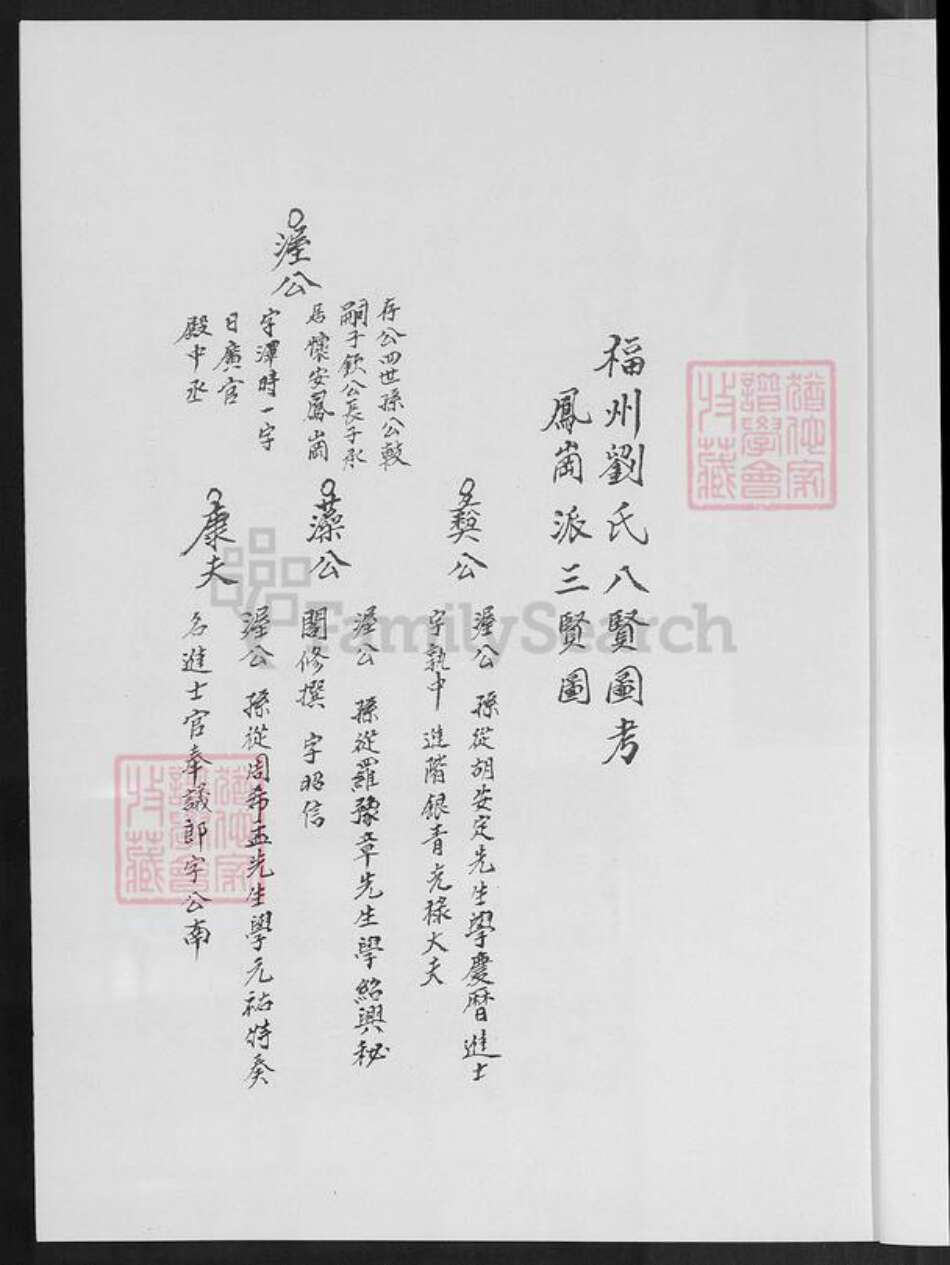 福州劉氏八賢圖考
鳳崗派三賢圖
渥公
存公四世孫公㪟
嗣子欽公長子承
居懷安鳳崗
字潭時一字
日廣官
殿中丞
彝公
渥公 孫從胡安定先生學慶曆進士
字執中 進階銀青光祿大夫
藻公
渥公 孫從羅豫章先生學紹興秘
閣修撰 字昭信
康夫
渥公 孫從周希孟先生學元祐特奏
名進士官奉議郎字公南
譜學會
收藏
譜學會
收藏
FamilySearch